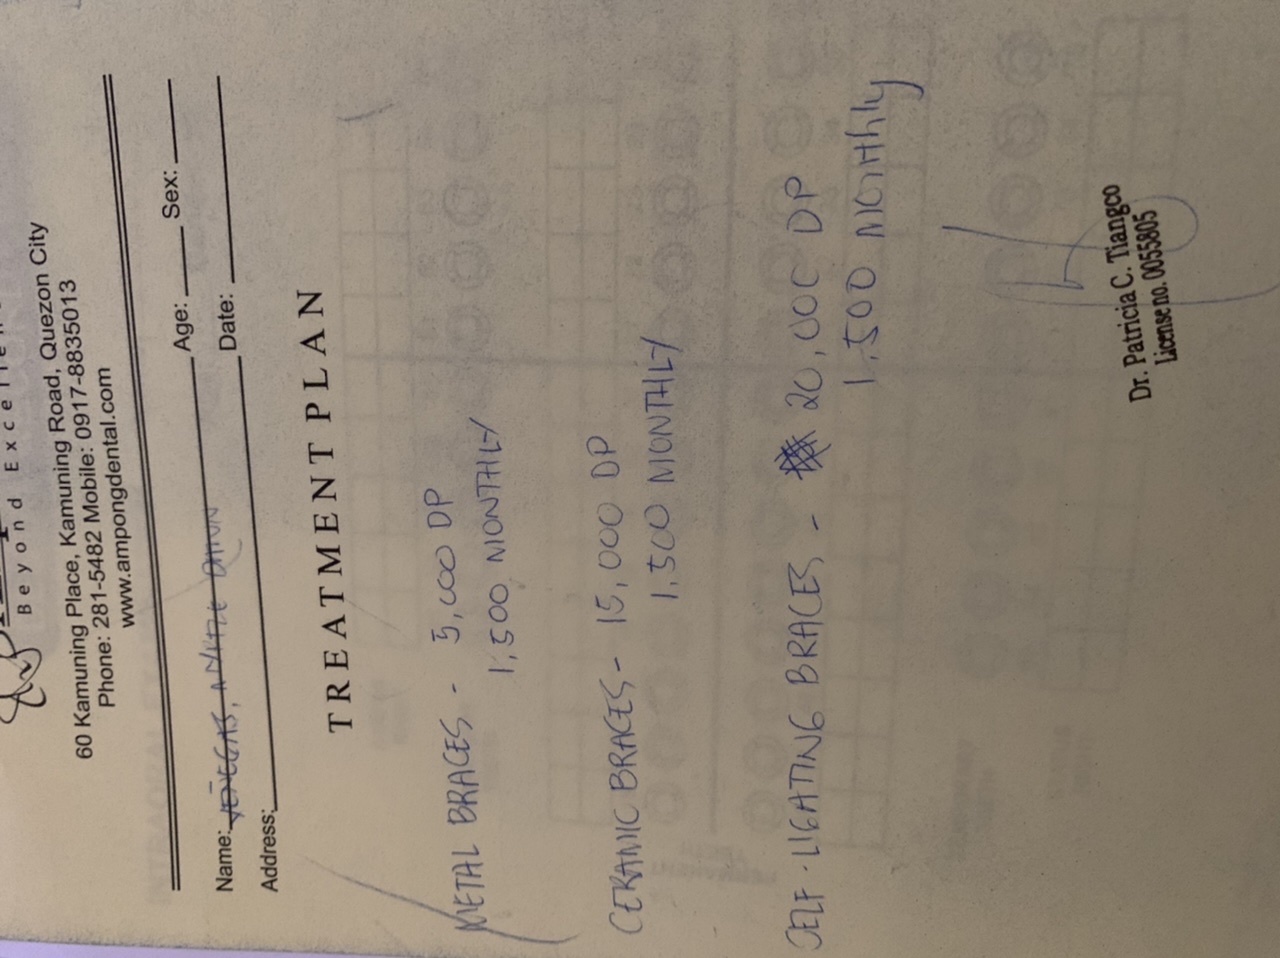 Beyond Excellen
60 Kamuning Place, Kamuning Road, Quezon City
Phone: 281-5482 Mobile: 0917-8835013
www.ampongdental.com
Name: Age: Sex:
Address: Date:
TREATMENT PLAN
METAL BRACES - 5,000 DP
1,500 MONTHLY
CERAMIC BRACES - 15,000 DP
1,500 MONTHLY
SELF-LIGATING BRACES - 20,000 DP
1,500 MONthly
Dr. Patricia C. Tiangco
License no. 0055805